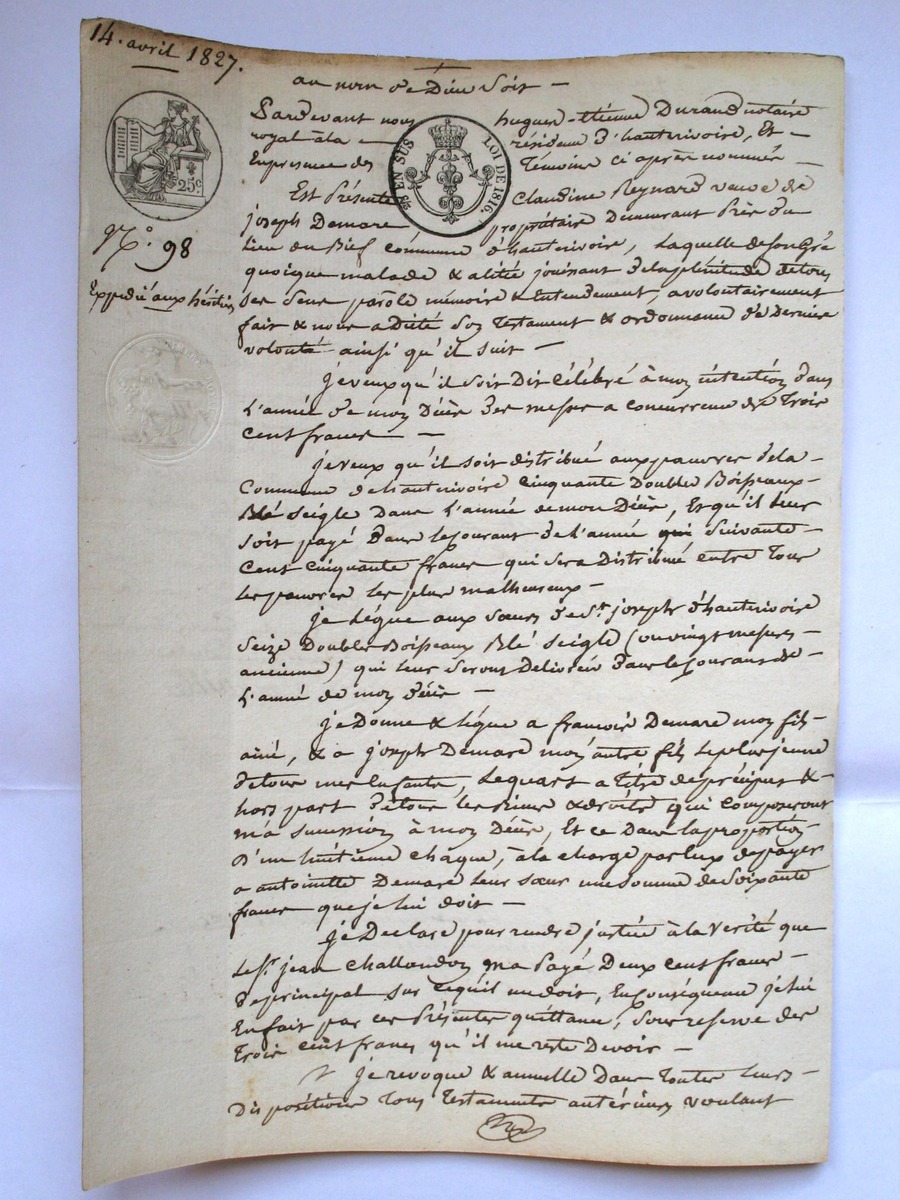 14. avril 1827.
au nom de Dieu Soit —
Pardevant nous hugues-étienne Durand notaire
royal à la résidence d'hauterivoire, Et —
En presence des Témoins ci après nommés —
EN SUS
LOI DE 1816.
25c
Est Présente Claudine Reynard veuve de
joseph Demare propriétaire Demeurant Près du
lieu du Bief commune d'hauterivoire, Laquelle de son Gré
quoique malade & alitée jouissant de la plénitude de tous
ses sens parole mémoire & Entendement, a volontairement
fait & nous a Dicté Son Testament & ordonnance de Derniere
volonté ainsi qu'il suit —
N.o 98
Expédié aux héritiers
je veux qu'il soit Dit Célébré à mon intention dans
L'année de mon Décès des messes a concurrence de Trois
Cent francs —
je veux qu'il soit distribué aux pauvres de la —
Commune de hauterivoire Cinquante Doubles Boisseaux —
Blé Seigle Dans L'année de mon Décès, Et qu'il leur
soit payé Dans le courant de L'année qui Suivante
Cent Cinquante francs qui sera Distribué entre Tous
les pauvres les plus malheureux —
je Légue aux sœurs de St. joseph d'hauterivoire
Seize Doubles Boisseaux Blé Seigle (ou vingt mesures —
ancienne) qui leur Seront Délivrés Dans le Courant de —
L'année de mon Décès —
je Donne & Légue a francois Demare mon fils —
ainé, & a joseph Demare mon autre fils le plus jeune
de tous mes Enfants, Le quart a Titre de préciput &
hors part de tous les Biens & droits qui Composeront
ma succession à mon Décès, Et ce Dans la proportion
D'un huitième chaque, à la charge par Eux de payer
a antoinette Demare leur sœur une somme de Soixante
francs que je lui doit —
je Declare pour rendre justice à la Verité que
le Sr. jean Challandon m'a Payé Deux cent francs —
de principal sur ce qu'il me doit, En Conséquence je lui
En fait par ces Présentes quittance, Sous reserve des
Trois cent francs qu'il me reste Devoir —
je revoque & annulle Dans Toutes Leurs —
Dispositions Tous Testaments antérieurs voulant